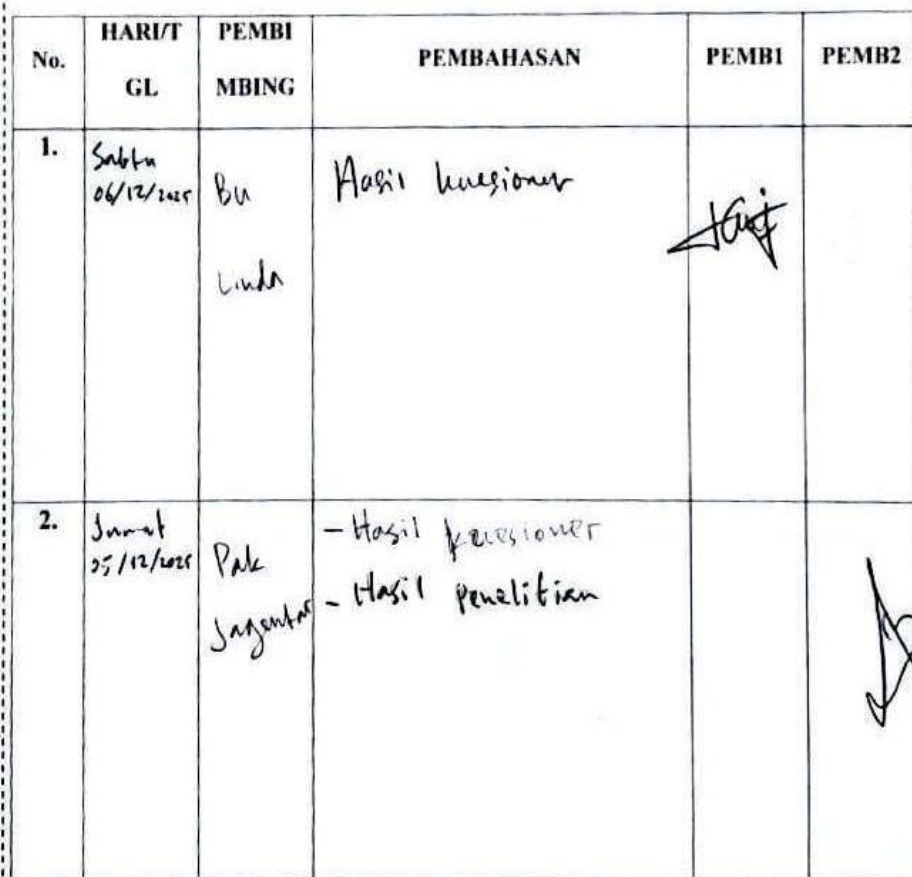 No.
HARI/T
GL
PEMBI
MBING
PEMBAHASAN
PEMB1
PEMB2
1.
Sabtu
06/12/2025
Bu
Linda
Hasil kuesioner
2.
Jumat
/12/2025
Pak
- Hasil kuesioner
- Hasil penelitian